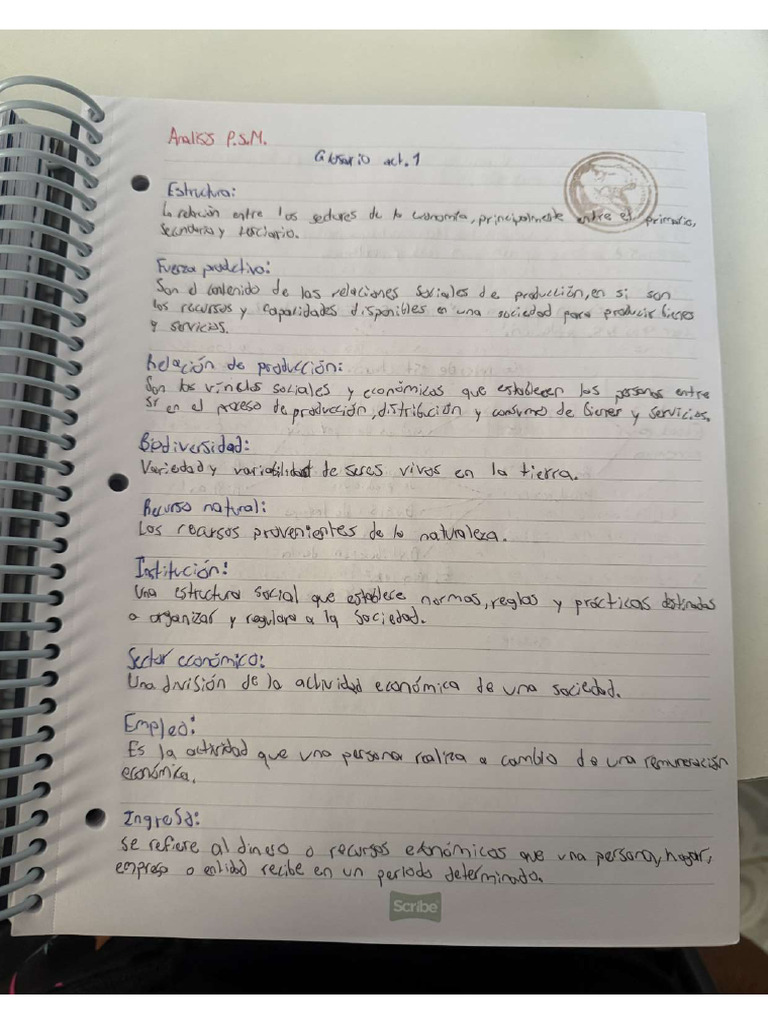 Analisis P.S.M.
Glosario act. 1
Estructura:
La relación entre los sectores de la economía, principalmente entre el primario,
secundario y terciario.
Fuerza productiva:
Son el contenido de las relaciones sociales de producción, en si son
los recursos y capacidades disponibles en una sociedad para producir bienes
y servicios.
Relación de producción:
Son los vínclos sociales y económicos que establecen las personas entre
sí en el proceso de producción, distribución y consumo de bienes y servicios.
Biodiversidad:
Variedad y variabilidad de seres vivos en la tierra.
Recurso natural:
Los recursos provenientes de la naturaleza.
Institución:
Una estructura social que establece normas, reglas y prácticas destinadas
a organizar y regulara a la sociedad.
Sector económico:
Una división de la actividad económica de una sociedad.
Empleo:
Es la actividad que una persona realiza a cambio de una remuneración
económica.
Ingreso:
Se refiere al dinero o recursos económicos que una persona, hogar,
empresa o entidad recibe en un periodo determinado.
Scribe